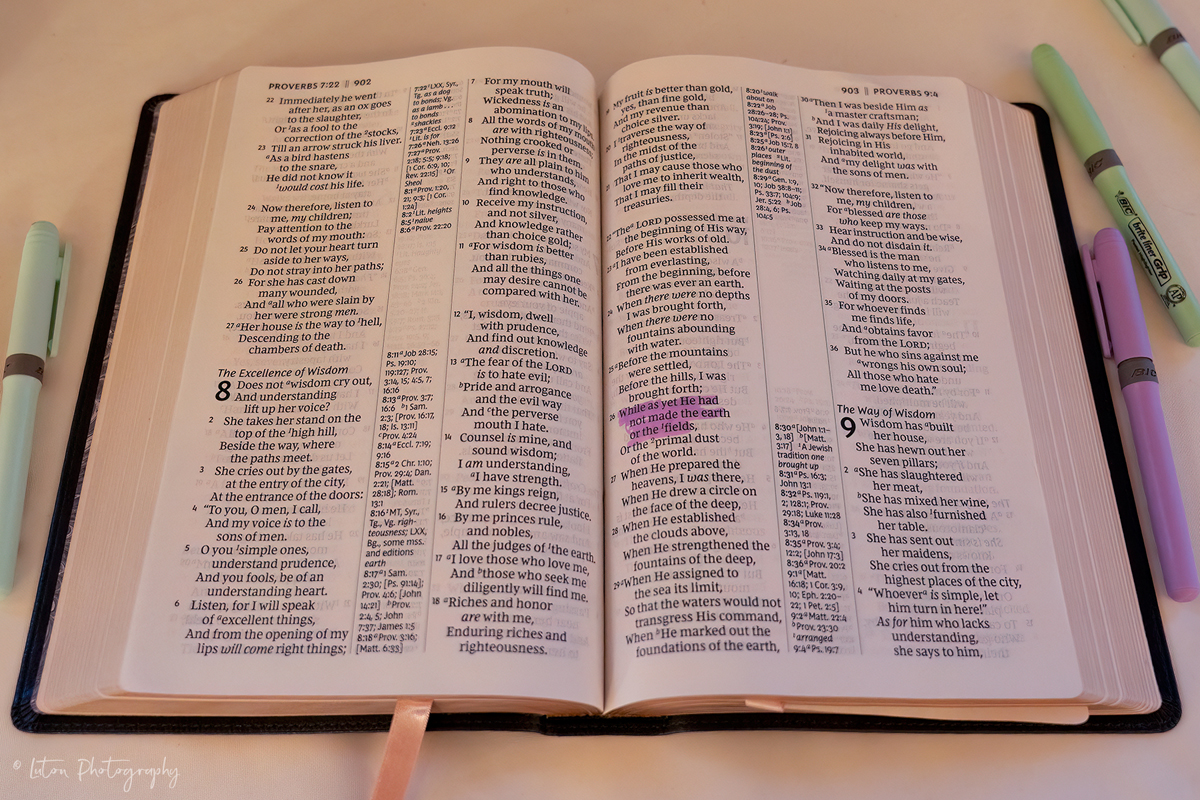 PROVERBS 7:22 || 902
22 Immediately he went
after her, as an ox goes
to the slaughter,
Or ¹as a fool to the
correction of the ²stocks,
23 Till an arrow struck his liver.
ᵃAs a bird hastens
to the snare,
He did not know it
¹would cost his life.
24 Now therefore, listen to
me, my children;
Pay attention to the
words of my mouth:
25 Do not let your heart turn
aside to her ways,
Do not stray into her paths;
26 For she has cast down
many wounded,
And ᵃall who were slain by
her were strong men.
27 ᵃHer house is the way to ¹hell,
Descending to the
chambers of death.
The Excellence of Wisdom
8 Does not ᵃwisdom cry out,
And understanding
lift up her voice?
2 She takes her stand on the
top of the ¹high hill,
Beside the way, where
the paths meet.
3 She cries out by the gates,
at the entry of the city,
At the entrance of the doors:
4 “To you, O men, I call,
And my voice is to the
sons of men.
5 O you ¹simple ones,
understand prudence,
And you fools, be of an
understanding heart.
6 Listen, for I will speak
of ᵃexcellent things,
And from the opening of my
lips will come right things;
7:22 ¹LXX, Syr.,
Tg. as a dog
to bonds; Vg.
as a lamb . . .
to bonds
²shackles
7:23 ᵃEccl. 9:12
¹Lit. is for
7:26 ᵃNeh. 13:26
7:27 ᵃProv.
2:18; 5:5; 9:18;
[1 Cor. 6:9, 10;
Rev. 22:15] ¹Or
Sheol
8:1 ᵃProv. 1:20,
21; 9:3; [1 Cor.
1:24]
8:2 ¹Lit. heights
8:5 ¹naive
8:6 ᵃProv. 22:20
8:11 ᵃJob 28:15;
Ps. 19:10;
119:127; Prov.
3:14, 15; 4:5, 7;
16:16
8:13 ᵃProv. 3:7;
16:6 ᵇ1 Sam.
2:3; [Prov. 16:17,
18; Is. 13:11]
ᶜProv. 4:24
8:14 ᵃEccl. 7:19;
9:16
8:15 ᵃ2 Chr. 1:10;
Prov. 29:4; Dan.
2:21; [Matt.
28:18]; Rom.
13:1
8:16 ¹MT, Syr.,
Tg., Vg. righ-
teousness; LXX,
Bg., some mss.
and editions
earth
8:17 ᵃ1 Sam.
2:30; [Ps. 91:14];
Prov. 4:6; [John
14:21] ᵇProv.
2:4, 5; John
7:37; James 1:5
8:18 ᵃProv. 3:16;
[Matt. 6:33]
7 For my mouth will
speak truth;
Wickedness is an
abomination to my lips.
8 All the words of my mouth
are with righteousness;
Nothing crooked or
perverse is in them.
9 They are all plain to him
who understands,
And right to those who
find knowledge.
10 Receive my instruction,
and not silver,
And knowledge rather
than choice gold;
11 ᵃFor wisdom is better
than rubies,
And all the things one
may desire cannot be
compared with her.
12 “I, wisdom, dwell
with prudence,
And find out knowledge
and discretion.
13 ᵃThe fear of the LORD
is to hate evil;
ᵇPride and arrogance
and the evil way
And ᶜthe perverse
mouth I hate.
14 Counsel is mine, and
sound wisdom;
I am understanding,
ᵃI have strength.
15 ᵃBy me kings reign,
And rulers decree justice.
16 By me princes rule,
and nobles,
All the judges of ¹the earth.
17 ᵃI love those who love me,
And ᵇthose who seek me
diligently will find me.
18 ᵃRiches and honor
are with me,
Enduring riches and
righteousness.
903 || PROVERBS 9:4
My fruit is better than gold,
yes, than fine gold,
And my revenue than
choice silver.
I ¹traverse the way of
righteousness,
In the midst of the
paths of justice,
That I may cause those who
love me to inherit wealth,
That I may fill their
treasuries.
“Theᵃ LORD possessed me at
the beginning of His way,
Before His works of old.
23 ᵃI have been established
from everlasting,
From the beginning, before
there was ever an earth.
24 When there were no depths
I was brought forth,
When there were no
fountains abounding
with water.
25 ᵃBefore the mountains
were settled,
Before the hills, I was
brought forth;
26 While as yet He had
not made the earth
or the ¹fields,
Or the ²primal dust
of the world.
27 When He prepared the
heavens, I was there,
When He drew a circle on
the face of the deep,
28 When He established
the clouds above,
When He strengthened the
fountains of the deep,
29 ᵃWhen He assigned to
the sea its limit,
So that the waters would not
transgress His command,
When ᵇHe marked out the
foundations of the earth,
8:20 ¹walk
about on
8:22 ᵃJob
28:26–28; Ps.
104:24; Prov.
3:19; [John 1:1]
8:23 ᵃ[Ps. 2:6]
8:25 ᵃJob 15:7, 8
8:26 ¹outer
places ²Lit.
beginning of
the dust
8:29 ᵃGen. 1:9,
10; Job 38:8–11;
Ps. 33:7; 104:9;
Jer. 5:22 ᵇJob
28:4, 6; Ps.
104:5
8:30 ᵃ[John 1:1–
3, 18] ᵇ[Matt.
3:17] ¹A Jewish
tradition one
brought up
8:31 ᵃPs. 16:3;
John 13:1
8:32 ᵃPs. 119:1,
2; 128:1; Prov.
29:18; Luke 11:28
8:34 ᵃProv.
3:13, 18
8:35 ᵃProv. 3:4;
12:2; [John 17:3]
8:36 ᵃProv. 20:2
9:1 ᵃ[Matt.
16:18; 1 Cor. 3:9,
10; Eph. 2:20–
22; 1 Pet. 2:5]
9:2 ᵃMatt. 22:4
ᵇProv. 23:30
¹arranged
9:4 ᵃPs. 19:7
30 ᵃThen I was beside Him as
¹a master craftsman;
ᵇAnd I was daily His delight,
Rejoicing always before Him,
31 Rejoicing in His
inhabited world,
And ᵃmy delight was with
the sons of men.
32 “Now therefore, listen to
me, my children,
For ᵃblessed are those
who keep my ways.
33 Hear instruction and be wise,
And do not disdain it.
34 ᵃBlessed is the man
who listens to me,
Watching daily at my gates,
Waiting at the posts
of my doors.
35 For whoever finds
me finds life,
And ᵃobtains favor
from the LORD;
36 But he who sins against me
ᵃwrongs his own soul;
All those who hate
me love death.”
The Way of Wisdom
9 Wisdom has ᵃbuilt
her house,
She has hewn out her
seven pillars;
2 ᵃShe has slaughtered
her meat,
ᵇShe has mixed her wine,
She has also ¹furnished
her table.
3 She has sent out
her maidens,
She cries out from the
highest places of the city,
4 “Whoeverᵃ is simple, let
him turn in here!”
As for him who lacks
understanding,
she says to him,
BIC
brite liner Grip
AP
BIC
© Luton Photography